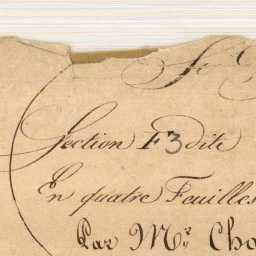 Section F3 dite
En quatre Feuilles
Par Mr. Cho